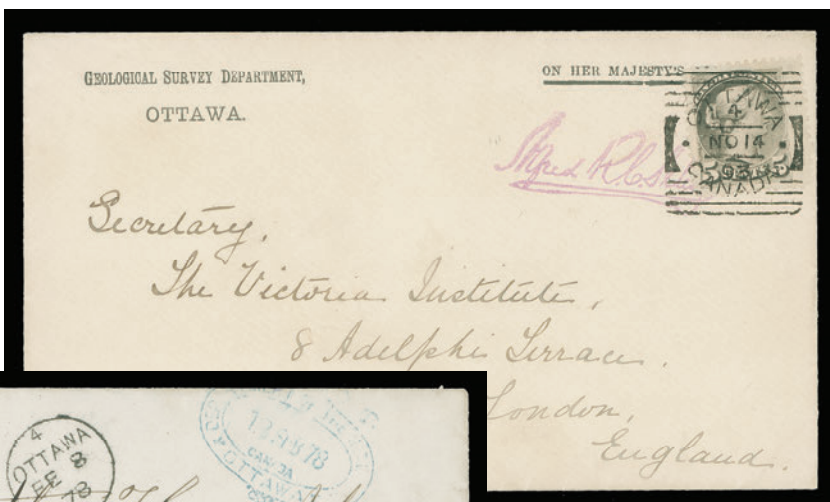 GEOLOGICAL SURVEY DEPARTMENT,
OTTAWA.
ON HER MAJESTY'S
OTTAWA
4
NO 14
93
CANADA
Alfred R.C.
Secretary,
The Victoria Institute,
8 Adelphi Terrace.
London,
England.
4
OTTAWA
FE 8
78
CANADA
OTTAWA